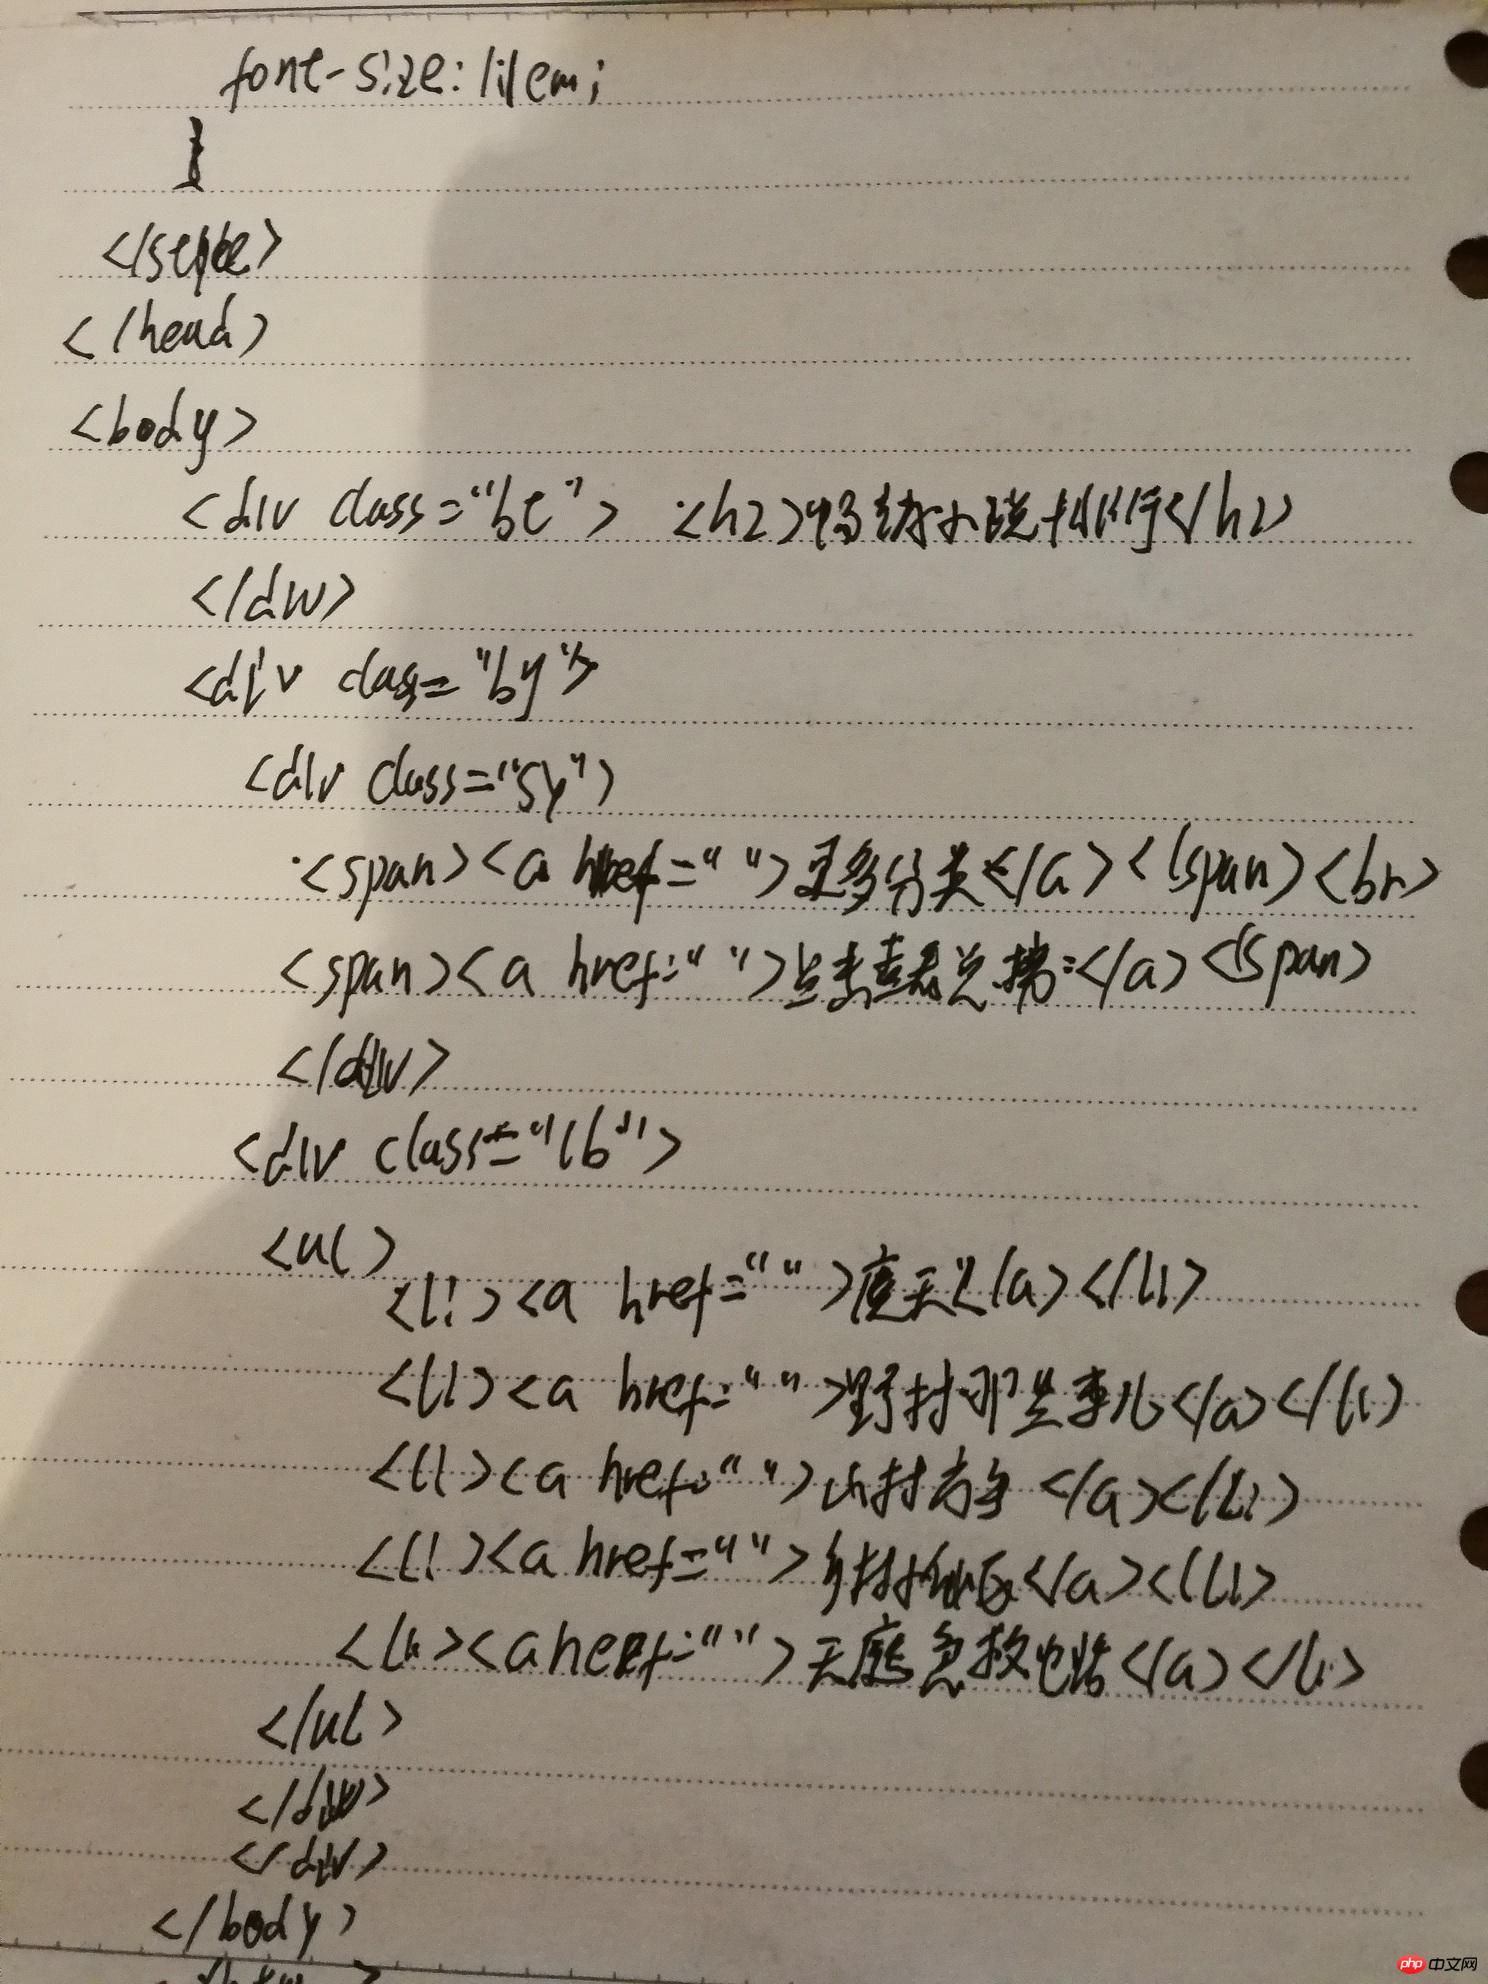 font-size: 1.1em;
}
</style>
</head>
<body>
<div class="bt"> <h2>完结小说排行</h2>
</div>
<div class="by">
<div class="sy">
<span><a href=" ">更多分类</a></span><br>
<span><a href=" ">点击查看总榜:</a></span>
</div>
<div class="lb">
<ul>
<li><a href=" ">虚天</a></li>
<li><a href=" ">野村那些事儿</a></li>
<li><a href=" ">山村</a></li>
<li><a href=" ">乡村</a></li>
<li><a href=" ">天庭急救</a></li>
</ul>
</div>
</div>
</body>
php 中文网